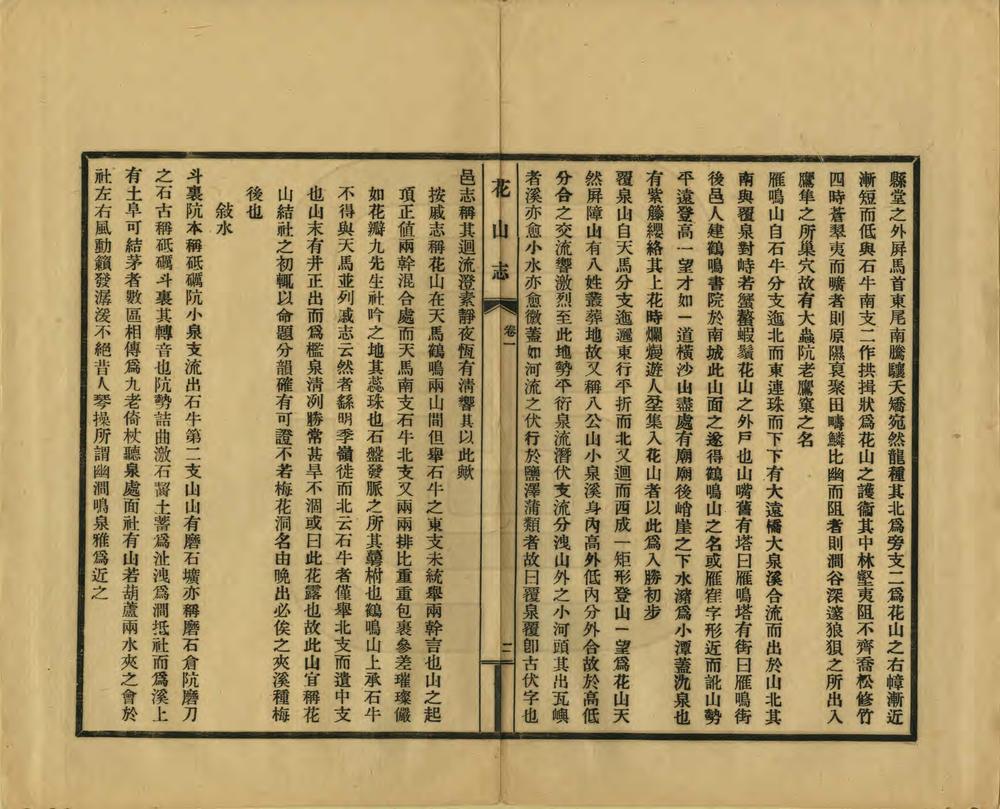 縣堂之外屏馬首東尾南騰驤天矯宛然龍種其北爲旁支二爲花山之右幛漸近
漸短而低與石牛南支二作拱揖狀爲花山之護衞其中林壑夷阻不齊喬松修竹
四時蒼翠夷而曠者則原隰裒聚田疇鱗比幽而阻者則澗谷深邃狼狽之所出入
鷹隼之所巢穴故有大蟲阬老鷹窠之名
雁鳴山自石牛分支迤北而東連珠而下下有大遠橋大泉溪合流而出於山北其
南與覆泉對峙若蟹螯蝦鬚花山之外戶也山嘴舊有塔曰雁鳴塔有街曰雁鳴街
後邑人建鶴鳴書院於南城此山面之遂得鶴鳴山之名或雁隺字形近而訛山勢
平遠登高一望才如一道橫沙山盡處有廟廟後峭崖之下水瀦爲小潭蓋氿泉也
有紫籐纓絡其上花時爛熳遊人坌集入花山者以此爲入勝初步
覆泉山自天馬分支迤邐東行平折而北又迴而西成一矩形登山一望爲花山天
然屏障山有八姓叢葬地故又稱八公山小泉溪身內高外低內分外合故於高低
分合之交流響激烈至此地勢平衍泉流潛伏支流分洩山外之小河頭其出瓦嶼
者溪亦愈小水亦愈微蓋如河流之伏行於鹽澤蒲類者故曰覆泉覆卽古伏字也
花山志
卷一
二
邑志稱其迴流澄素靜夜恆有清響其以此歟
按戚志稱花山在天馬鶴鳴兩山間但舉石牛之東支未統舉兩幹言也山之起
項正値兩幹混合處而天馬南支石牛北支又兩兩排比重重包裹參差璀璨儼
如花瓣九先生社吟之地其蕊珠也石盤發脈之所其萼柎也鶴鳴山上承石牛
不得與天馬並列戚志云然者繇明季嶺徙而北云石牛者僅舉北支而遺中支
也山末有井正出而爲檻泉淸冽勝常甚旱不涸或曰此花露也故此山宜稱花
山結社之初輒以命題分韻確有可證不若梅花洞名由晚出必俟之夾溪種梅
後也
敍水
斗裏阬本稱砥礪阬小泉支流出石牛第二支山山有磨石壙亦稱磨石倉阬磨刀
之石古稱砥礪斗裏其轉音也阬勢詰曲激石齧土蓄爲沚洩爲澗抵社而爲溪上
有土阜可結茅者數區相傳爲九老倚杖聽泉處面社有山若葫蘆兩水夾之會於
社左右風動籟發潺湲不絕昔人琴操所謂幽澗鳴泉雅爲近之